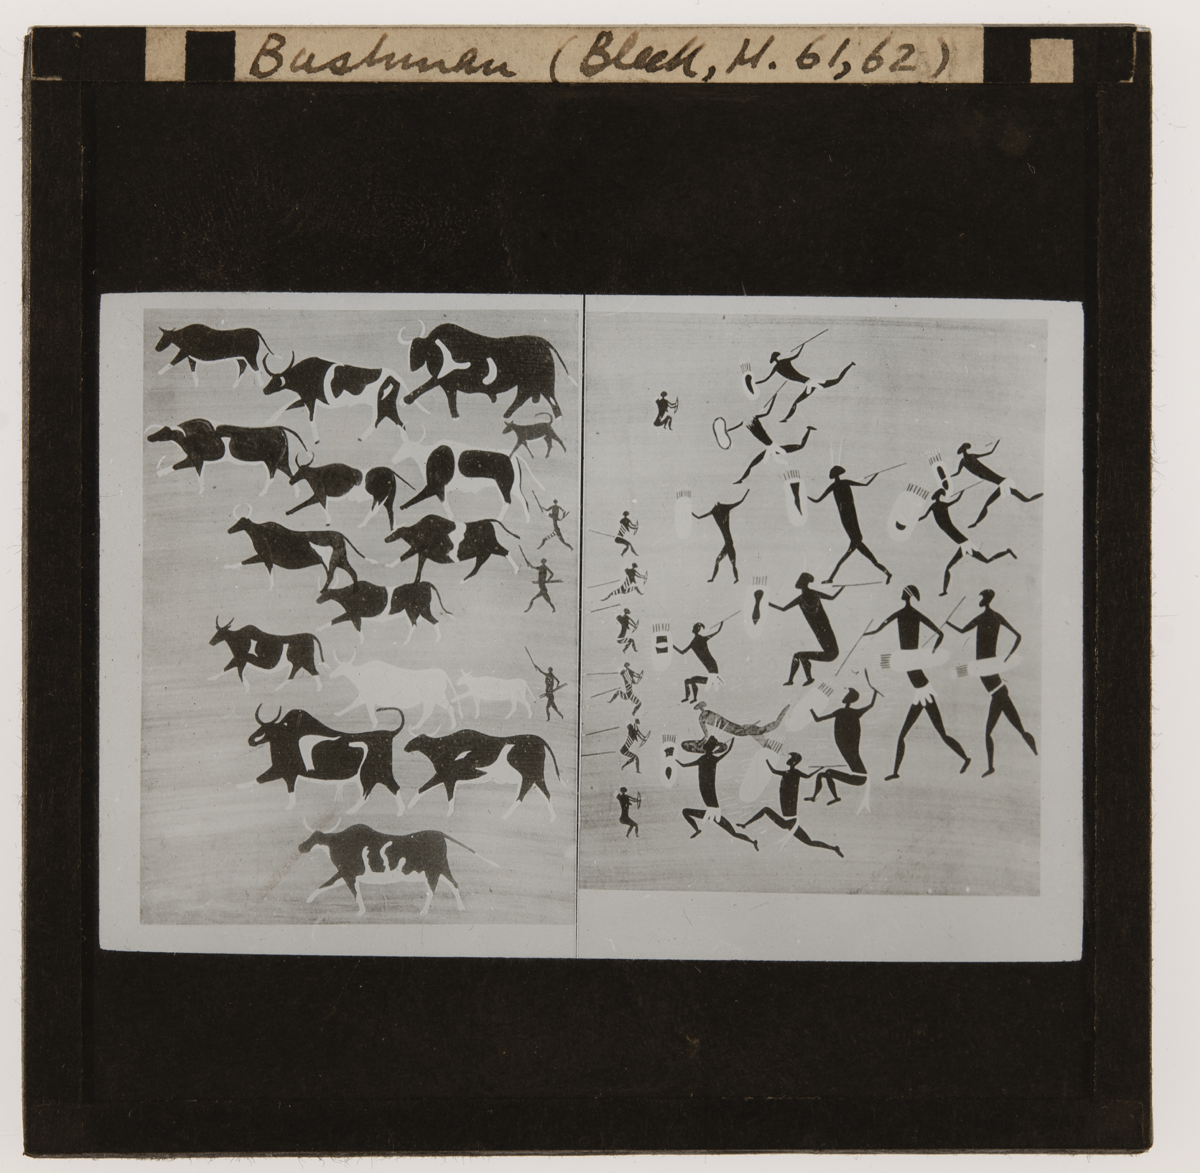 Bushman (Bleek, H. 61, 62)